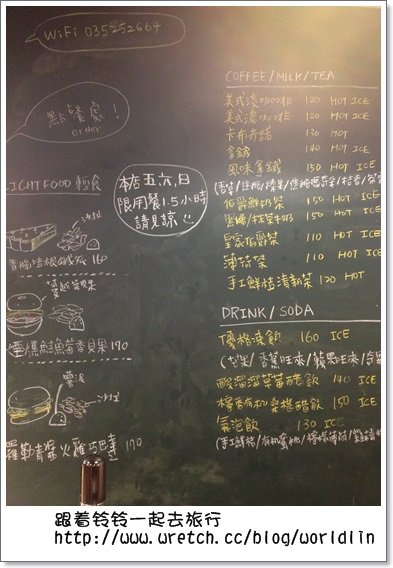 WiFi 035252664
點餐處！
order
本店五六.日
限用餐1.5小時
請見諒
LIGHT FOOD 輕食
160
燻鮭魚茴香貝果 170
羅勒青醬火雞巧巴達 170
COFFEE/MILK/TEA
美式淡咖啡 120 HOT ICE
美式濃咖啡 120 HOT ICE
卡布奇諾 130 HOT
拿鐵 140 HOT ICE
風味拿鐵 150 HOT ICE
伯爵鮮奶茶 150 HOT ICE
150 HOT ICE
皇家伯爵茶 110 HOT ICE
薄荷茶 110 HOT ICE
手工鮮桔清新茶 120 HOT
DRINK/SODA
優格凍飲 160 ICE
酸溜溜草莓醋飲 140 ICE
檸香有机桑椹醋飲 150 ICE
氣泡飲 130 ICE
跟着铃铃一起去旅行
http://www.wretch.cc/blog/worldlin